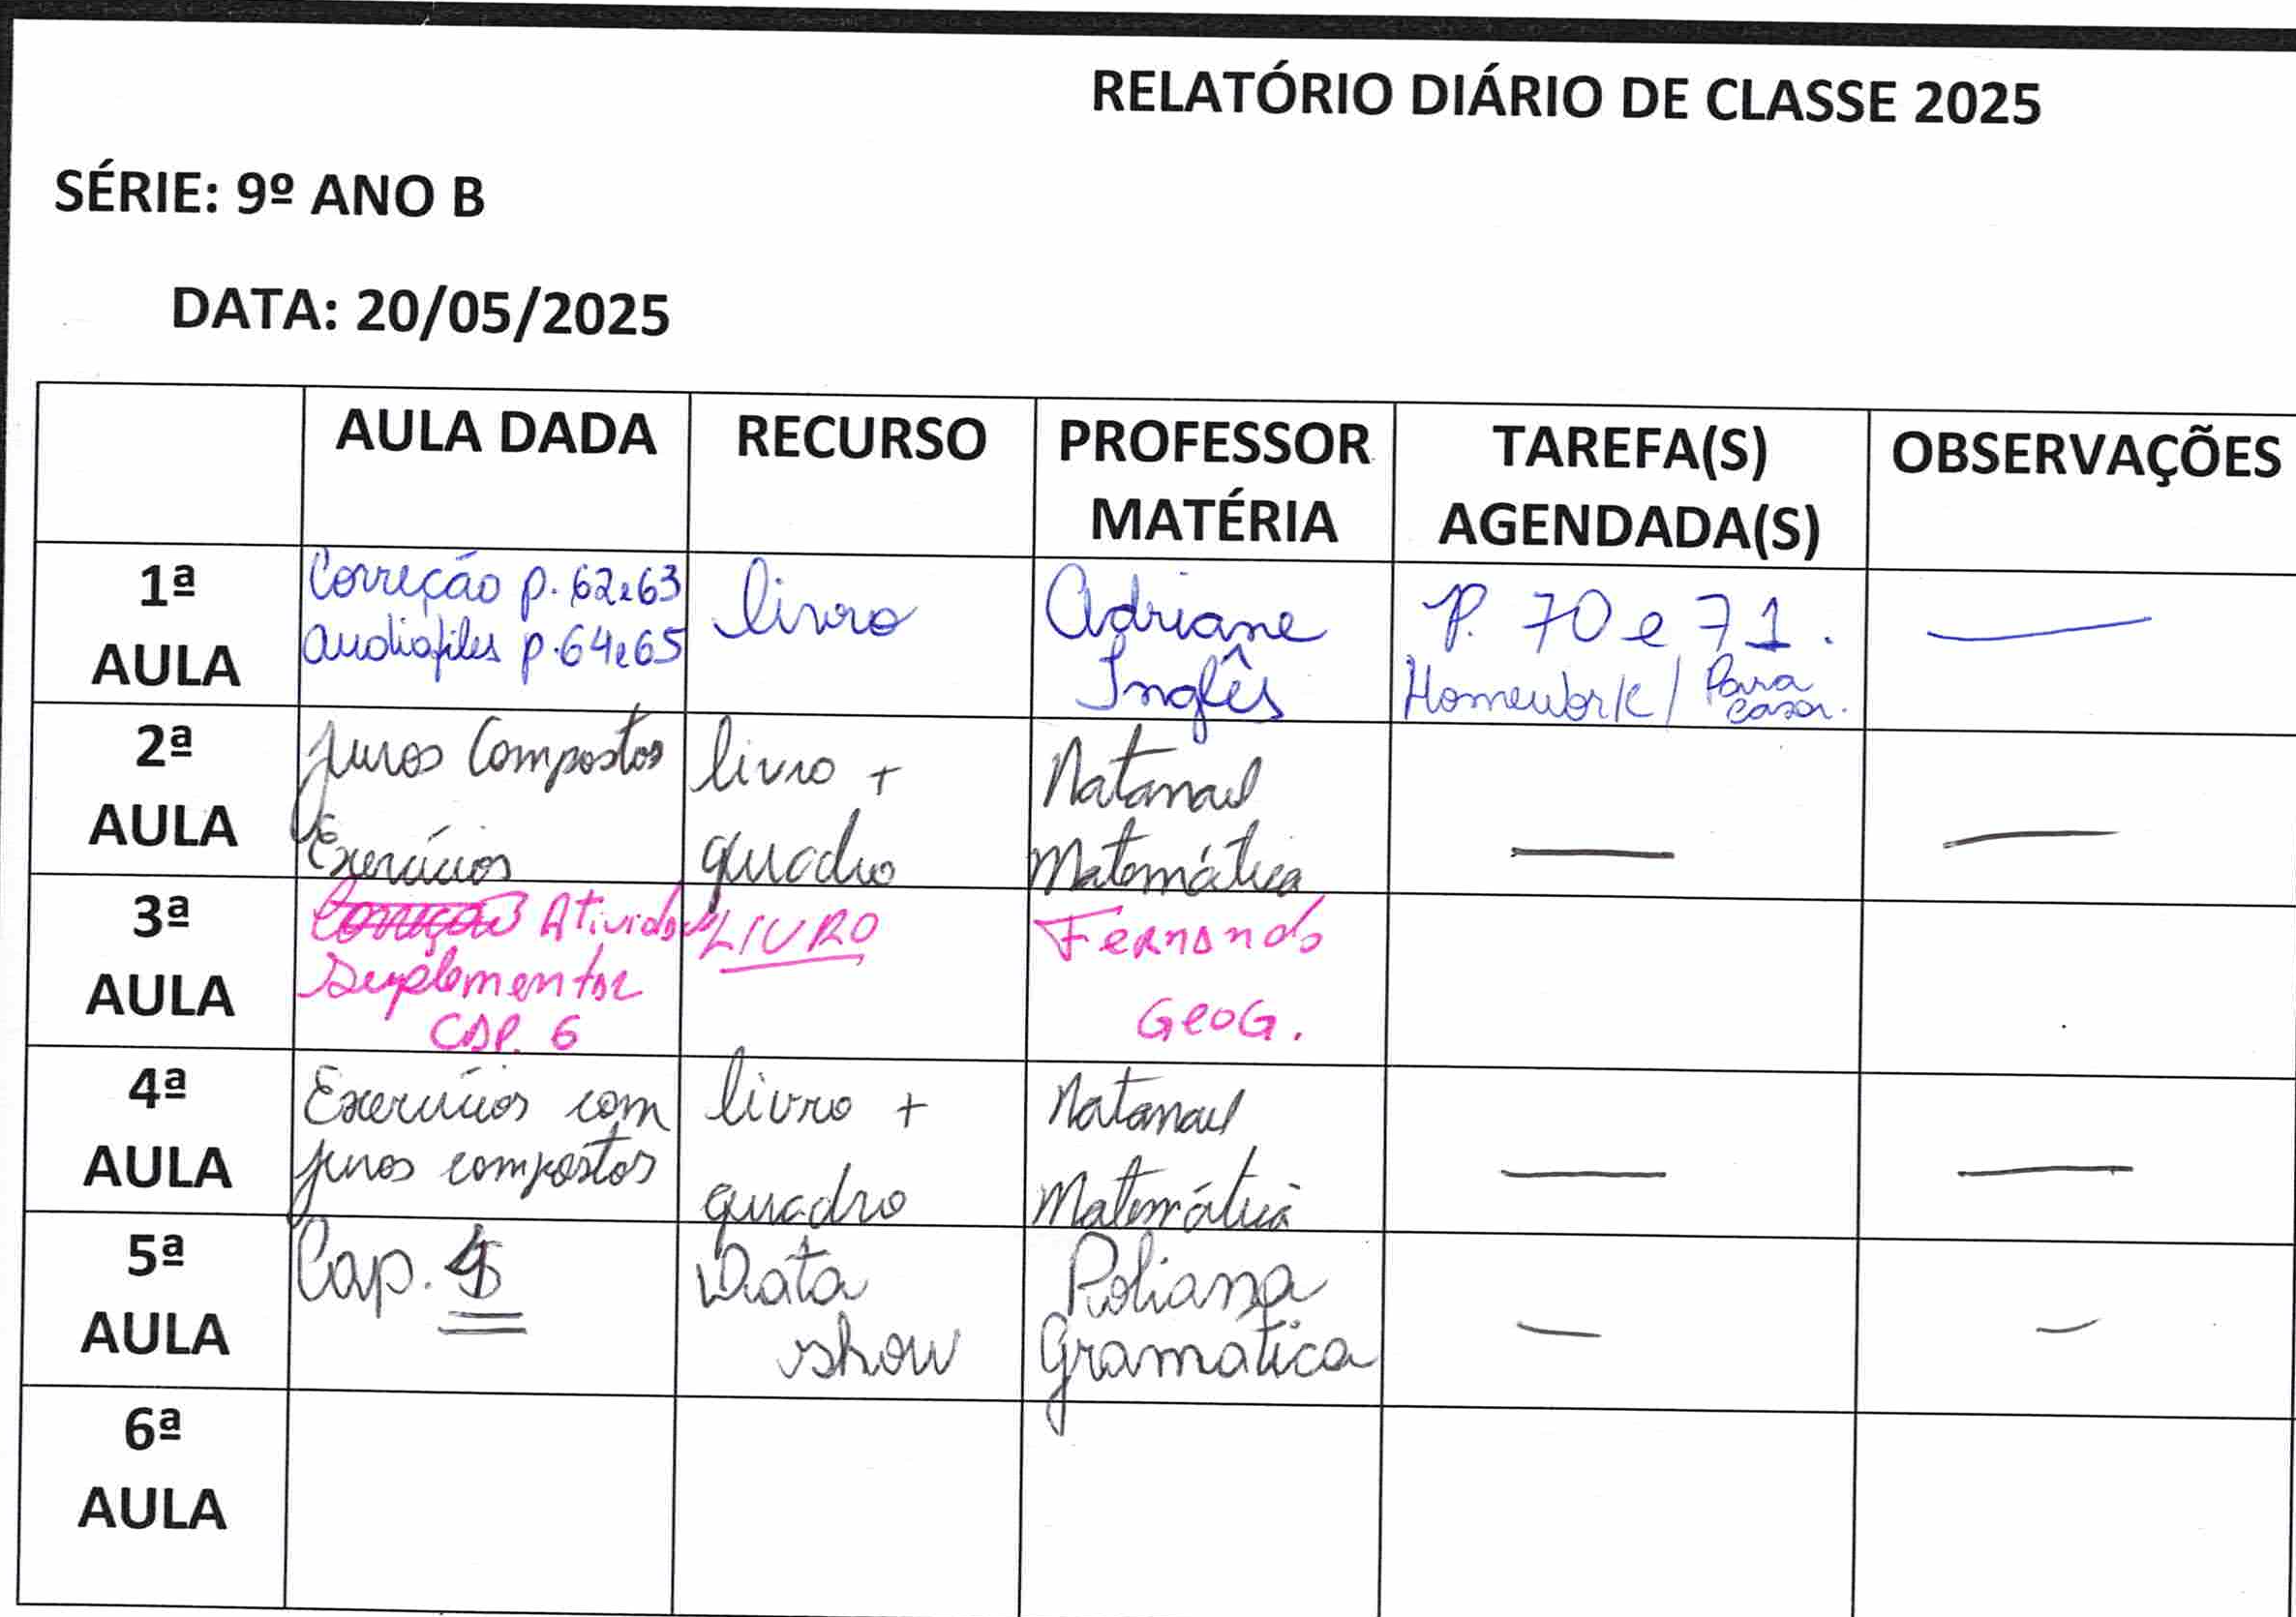 RELATÓRIO DIÁRIO DE CLASSE 2025
SÉRIE: 9º ANO B
DATA: 20/05/2025
AULA DADA
RECURSO
PROFESSOR
MATÉRIA
TAREFA(S)
AGENDADA(S)
OBSERVAÇÕES
1ª
AULA
Correção p. 62e63
Audiofiles p.64e65
livro
Adriane
Inglês
P. 70 e 71.
Homework / Para
casa.
2ª
AULA
Juros Compostos
Exercícios
livro +
quadro
Natanael
Matemática
3ª
AULA
Correção Atividade
Suplementar
CAP. 6
LIVRO
Fernando
GeoG.
4ª
AULA
Exercícios com
juros compostos
livro +
quadro
Natanael
Matemática
5ª
AULA
Cap.
Data
show
Poliana
Gramatica
6ª
AULA